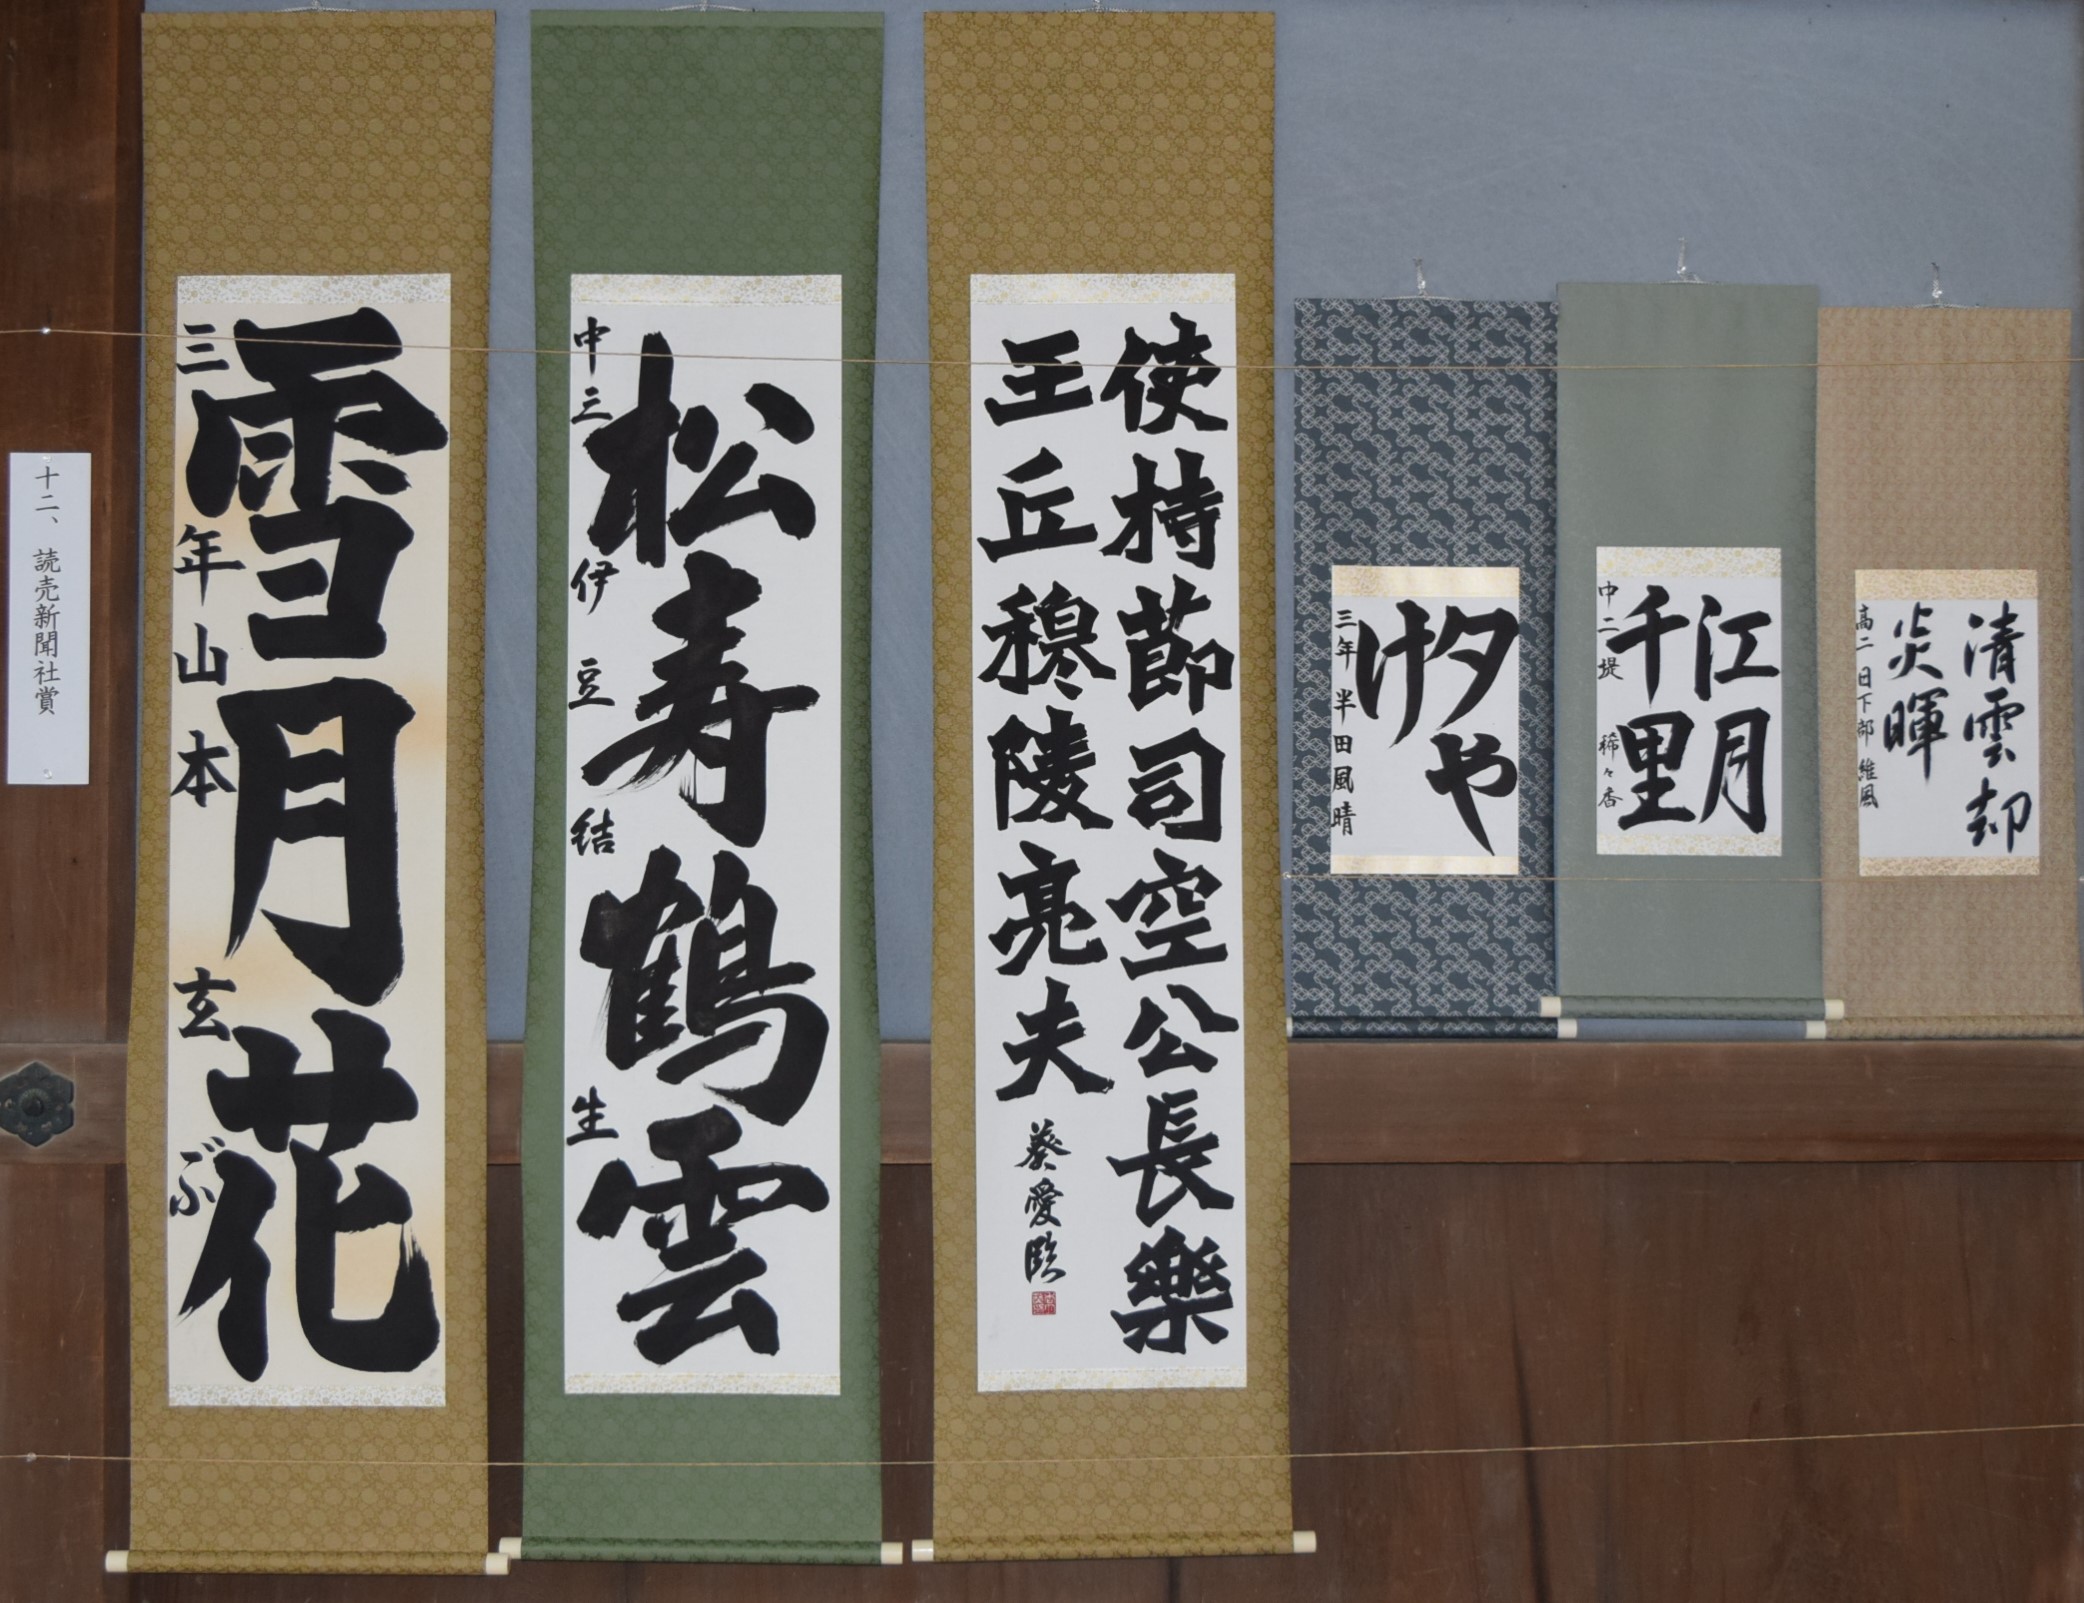 十二、読売新聞社賞
雪月花
三年山本玄ぶ
松寿鶴雲
中三伊豆結生
使持節司空公長樂
王丘穆陵亮夫
葵愛臨
夕や
け
三年半田風晴
江月
千里
中二堤稀々香
清雲却
炎暉
高二日下部維風